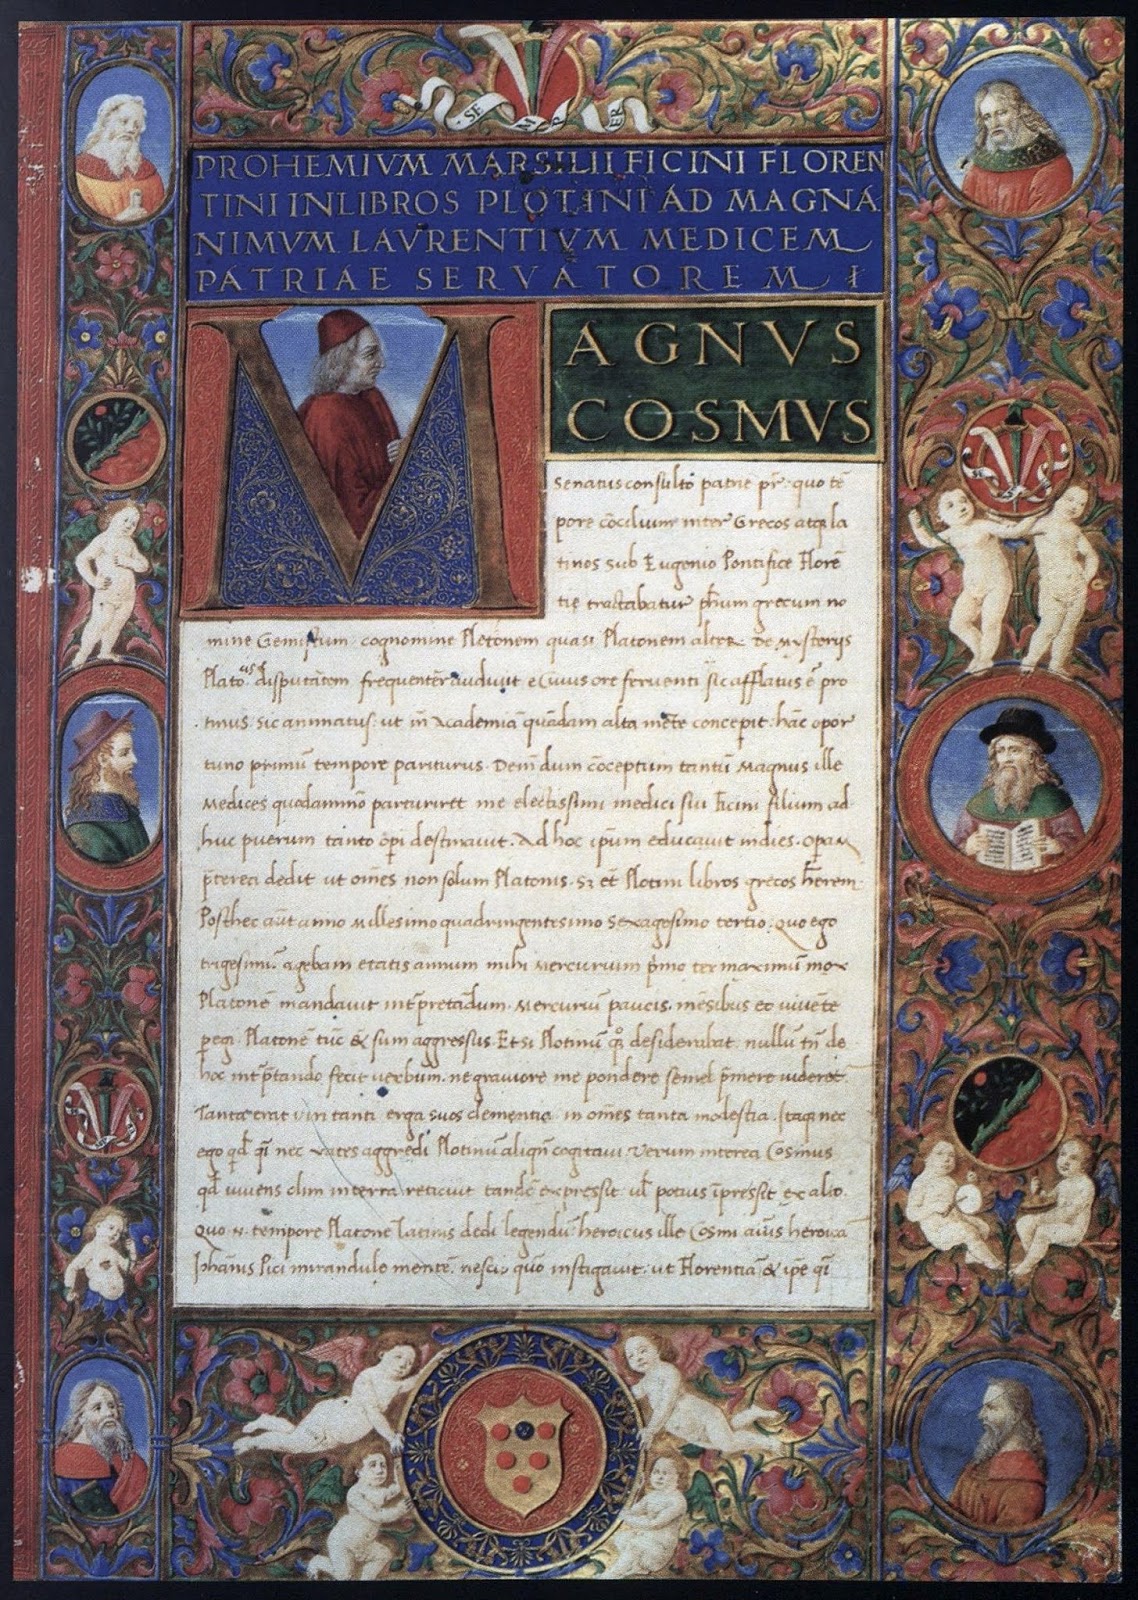 SEMPER
PROHEMIVM MARSILII FICINI FLOREN
TINI IN LIBROS PLOTINI AD MAGNA
NIMVM LAVRENTIVM MEDICEM
PATRIAE SERVATOREM
MAGNVS
COSMVS
Senatus consulto patrie pr̄: quo tē
pore cōcilium inter Grecos atq; la
tinos sub Eugenio Pontifice Florē
tie tractabatur ph̄um grecum no
mine Gemistum cognomine Pletonem quasi Platonem alterū de mysterijs
Platonicis disputātem frequenter audiuit e Cuius ore feruenti sic afflatus ē pro
tinus sic animatus: ut in̄ Academiā quādam alta mēte conceperit: hāc opor
tuno primū tempore pariturus. Dein̄ dum cōceptum tantū Magnus ille
Medices quodammō parturiret me electissimi medici sui Ficini filium ad
huc puerum tanto ōpi destinauit. Ad hoc ip̄um educauit indies. Operam
p̄terea dedit ut om̄es non solum Platonis. Sʒ et̄ Plotini libros grecos h̄erem
Posthec aūt anno Millesimo quadringentesimo Sexagesimo tertio. Quo ego
trigesimū agebam etatis annum mihi Mercurium p̄mo termaximū mox
Platonē mandauit int̄pretādum. Mercuriū paucis mēsibus eo uiuēte
peregi. Platonē tūc & sum aggressus. Etsi Plotinū q̊q; desiderabat nullū tn̄ de
hoc int̄p̄tando fecit uerbum. ne grauiore me pondere semel p̄mere uideret̄
Tanta erat uiri tanti erga suos clementia in om̄es tanta modestia. Itaq; nec
ego qd̄ q̄i nec uates aggredi Plotinū aliqn̄ cogitaui. Verum interea Cosmus
qd̄ uiuens olim in terra reticuit tandē expressit ul̄ potius īpressit ex alto.
Quo .n. tempore Platonē Latinis dedi legendū heroicus ille Cosmi aīus heroicā
Joh̄anis Pici mirandule mentē nescio quō instigauit: ut Florentiā & ipē q̄i